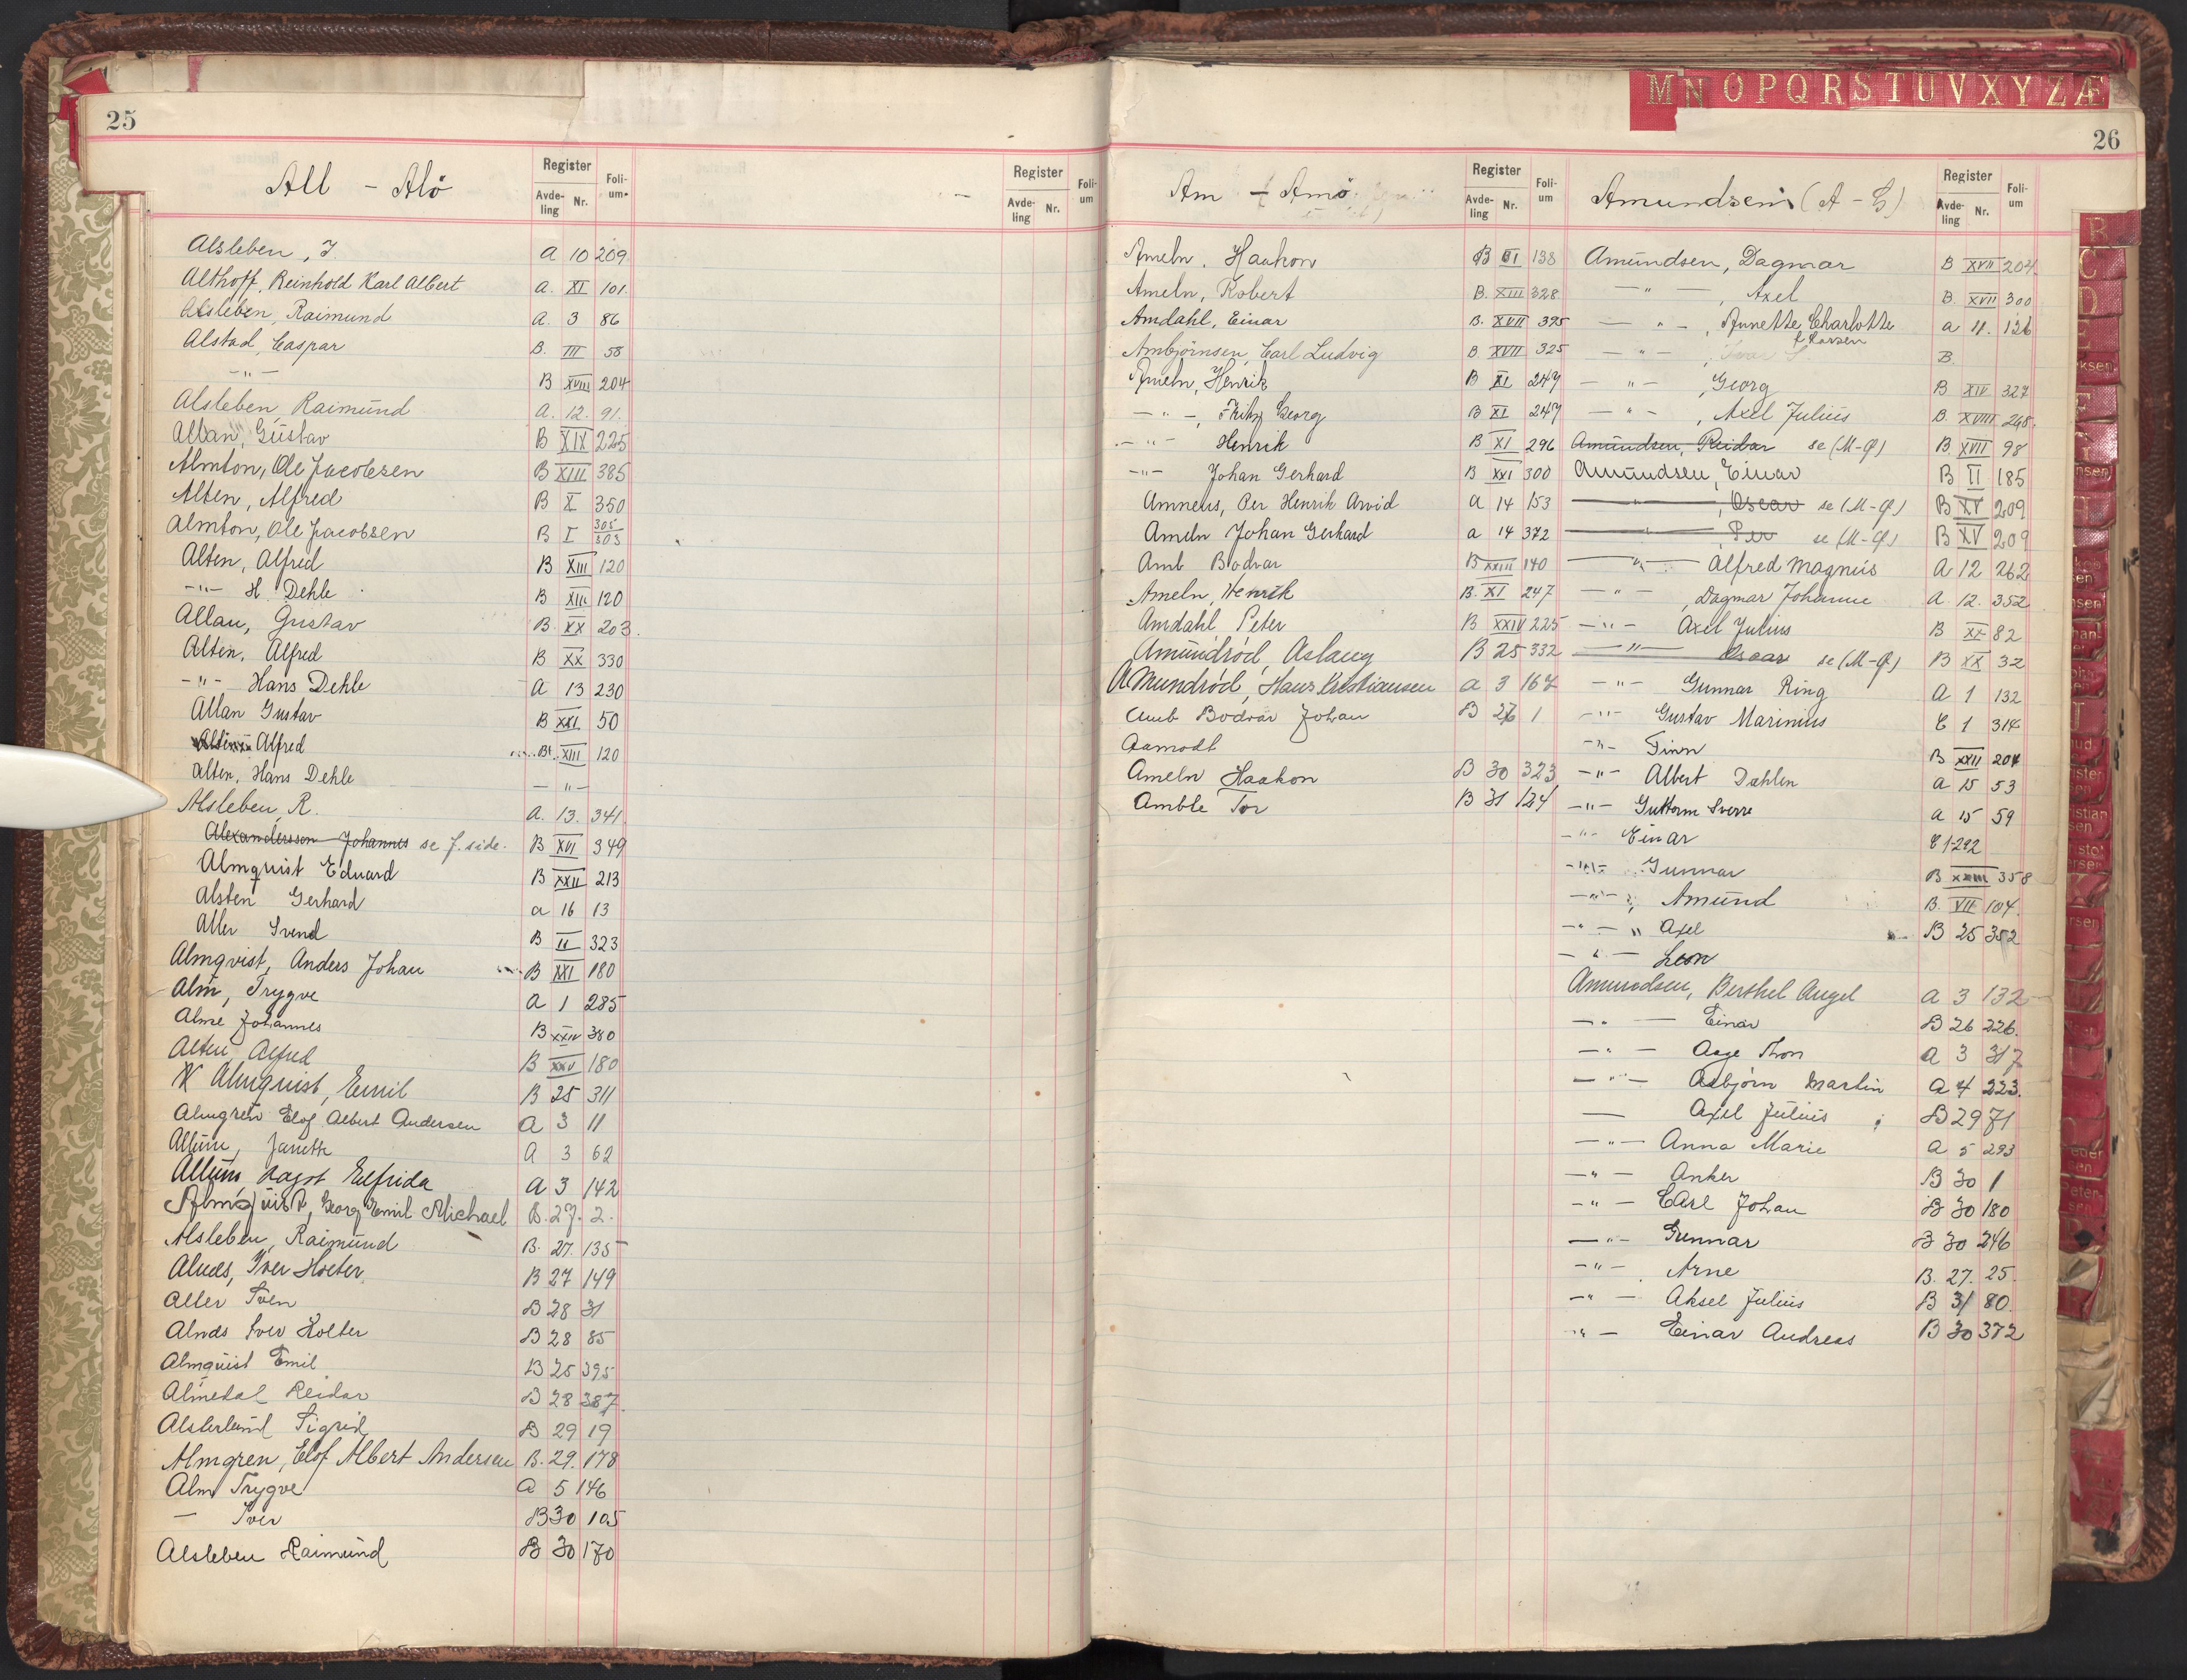 25
All - Alö
Register
Avde-ling Nr. Foli-um
Register
Avde-ling Nr. Foli-um
Alsleben, J. A 10 209
Althoff, Reinhold Karl Albert A. XI 101.
Alsleben, Raimund A. 3 86
Alstad, Caspar B. III 58
-"- B XVIII 204
Alsleben, Raimund A. 12. 91.
Allan, Gustav B XIX 225
Almton, Ole Jacobsen B XIII 385
Alten, Alfred B X 350
Almton, Ole Jacobsen B I 305 303
Alten, Alfred B XIII 120
-"- H. Dehle B XIII 120
Allan, Gustav B. XX 203.
Alten, Alfred B XX 330
-"- Hans Dehle A 13 230
Allan Gustav B XXI 50
Alten Alfred B XIII 120
Alten, Hans Dehle -"-
Alsleben, R. A. 13. 341.
Alexandersson Johannes se f. side. B XVI 349
Almquist Eduard B XXII 213
Alsten Gerhard a 16 13
Aller Svend B II 323
Almqvist, Anders Johan B XXI 180
Alm, Trygve A 1 285
Alme Johannes B XXIV 380
Alten Alfred B XXV 180
Almquist, Emil B 25 311
Almgren Elof Albert Andersen A 3 11
Allum, A 3 62
Allum, Elfrida A 3 142
Almquist, Georg Emil Michael B. 27. 2.
Alsleben, Raimund B. 27. 135
Iver B 27 149
Aller Sven B 28 31
Alnds Iver Holter B 28 85
Almquist Emil B 25 395
Almedal Reidar B 28 387.
Alsterlund Sigrid B 29 19
Almgren, Elof Albert Andersen B. 29. 178
Alm Trygve A 5 146
- Iver B 30 105
Alsleben Raimund B 30 170
M N O P Q R S T U V X Y Z Æ
26
Am - Amö
Register
Avde-ling Nr. Foli-um
Ameln, Haakon B VI 138
Ameln, Robert B. XIII 328
Amdahl, Einar B. XVII 395
Ambjörnsen, Carl Ludvig B. XVII 325
Ameln, Henrik B XI 247
-"-, Fritz Georg B XI 247
-"- Henrik B XI 296
-"- Johan Gerhard B XXI 300
Amneus, Per Henrik Arvid A 14 153
Ameln Johan Gerhard a 14 372
Amb Bodvar B XXIII 140
Ameln, Henrik B. XI 247
Amdahl Peter B XXIV 225
Amundröd, Aslaug B 25 332
Amundröd, Hans Kristiansen A 3 167
Amb Bodvar Johan B 26 1
Aamodt
Ameln Haakon B 30 323
Amble Tor B 31 124
Amundsen (A - L)
Register
Avde-ling Nr. Foli-um
Amundsen, Dagmar B XVII 204
-"-, Axel B. XVII 300
-"-, Annette Charlotte Klassen A 11. 126
-"- B.
-"-, Georg B XIV 327
-"-, Axel Julius B. XVIII 268.
Amundsen, Reidar se (M-Q) B. XVII 98
Amundsen, Einar B II 185
-"-, Oscar se (M-Q) B XV 209
-"-, Per se (M-Q) B XV 209
-"- Alfred Magnus A 12 262
-"-, Dagmar Johanne A. 12. 352
-"- Axel Julius B XX 82
-"- Oscar se (M-Q) B XX 32
-"- Gunnar Ring A 1 132
-"- Gustav Marinius C 1 314
-"- Finn B XXII 204
-"- Albert Dahlen A 15 53
-"- Guttorm Sverre A 15 59
-"- Einar C 1 292
-"- Gunnar B XXIII 358
-"-, Amund B. VII 104.
-"- Axel B 25 352
-"- Leon
Amundsen, Berthel Angel A 3 132
-"- Einar B 26 226.
-"- Aage Thon A 3 317
-"- Asbjörn Martin A 4 223.
- Axel Julius B 29 71
-"- Anna Marie A 5 293
-"- Anker B 30 1
-"- Carl Johan B 30 180
-"- Gunnar B 30 246
-"- Arne B. 27. 25.
-"- Aksel Julius B 31 80.
-"- Einar Andreas B 30 372